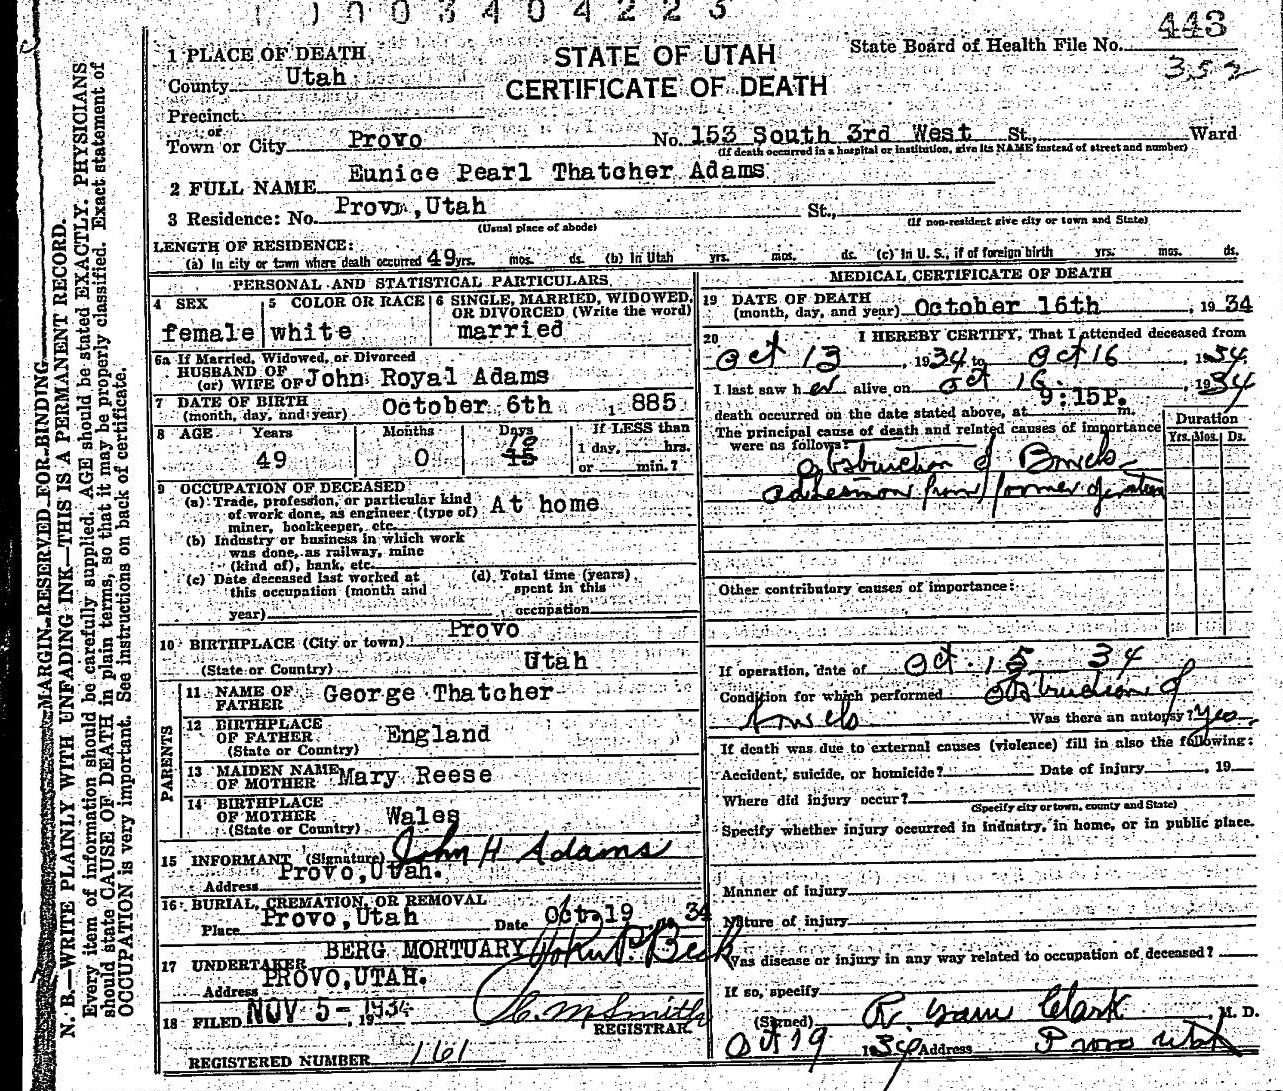 1 0 0 3 4 0 4 2 2 3
MARGIN RESERVED FOR BINDING
N. B.—WRITE PLAINLY WITH UNFADING INK—THIS IS A PERMANENT RECORD.
Every item of information should be carefully supplied. AGE should be stated EXACTLY. PHYSICIANS
should state CAUSE OF DEATH in plain terms, so that it may be properly classified. Exact statement of
OCCUPATION is very important. See instructions on back of certificate.
STATE OF UTAH
CERTIFICATE OF DEATH
State Board of Health File No. 443
352
1 PLACE OF DEATH
County Utah
Precinct
or
Town or City Provo No. 153 South 3rd West St., Ward
(If death occurred in a hospital or institution, give its NAME instead of street and number)
2 FULL NAME Eunice Pearl Thatcher Adams
3 Residence: No. Provo, Utah St.,
(Usual place of abode) (If non-resident give city or town and State)
LENGTH OF RESIDENCE:
(a) In city or town where death occurred 49 yrs. mos. ds. (b) In Utah yrs. mos. ds. (c) In U. S., if of foreign birth yrs. mos. ds.
PERSONAL AND STATISTICAL PARTICULARS
4 SEX female
5 COLOR OR RACE white
6 SINGLE, MARRIED, WIDOWED,
OR DIVORCED (Write the word)
married
6a If Married, Widowed, or Divorced
HUSBAND OF
(or) WIFE OF John Royal Adams
7 DATE OF BIRTH
(month, day, and year) October 6th , 1885
8 AGE Years Months Days If LESS than
49 0 10 15 1 day, hrs.
or min.?
9 OCCUPATION OF DECEASED
(a) Trade, profession, or particular kind
of work done, as engineer (type of)
miner, bookkeeper, etc. At home
(b) Industry or business in which work
was done, as railway, mine
(kind of), bank, etc.
(c) Date deceased last worked at
this occupation (month and
year)
(d) Total time (years)
spent in this
occupation
10 BIRTHPLACE (City or town) Provo
(State or Country) Utah
PARENTS
11 NAME OF
FATHER George Thatcher
12 BIRTHPLACE
OF FATHER England
(State or Country)
13 MAIDEN NAME
OF MOTHER Mary Reese
14 BIRTHPLACE
OF MOTHER Wales
(State or Country)
15 INFORMANT (Signature) John H Adams
Address Provo, Utah.
16 BURIAL, CREMATION, OR REMOVAL
Place Provo, Utah Date Oct. 19, 1934
17 UNDERTAKER BERG MORTUARY John P. Beck
Address PROVO, UTAH.
18 FILED NOV 5-1934 , 19
C. M Smith
REGISTRAR
REGISTERED NUMBER 161
MEDICAL CERTIFICATE OF DEATH
19 DATE OF DEATH
(month, day, and year) October 16th , 1934
20 I HEREBY CERTIFY, That I attended deceased from
Oct 13 , 1934 to Oct 16 , 1934
I last saw her alive on Oct 16 , 1934
death occurred on the date stated above, at 9:15P. m.
The principal cause of death and related causes of importance
were as follows:
Duration
Yrs. Mos. Ds.
Obstruction of Bowels
adhesions from former operation
Other contributory causes of importance:
If operation, date of Oct. 15 34
Condition for which performed obstruction of
bowels Was there an autopsy? Yes
If death was due to external causes (violence) fill in also the following:
Accident, suicide, or homicide? Date of injury , 19
Where did injury occur?
(Specify city or town, county and State)
Specify whether injury occurred in industry, in home, or in public place.
Manner of injury
Nature of injury
Was disease or injury in any way related to occupation of deceased?
If so, specify
(Signed) R. Clark , M. D.
Oct 19 1934 Address Provo Utah